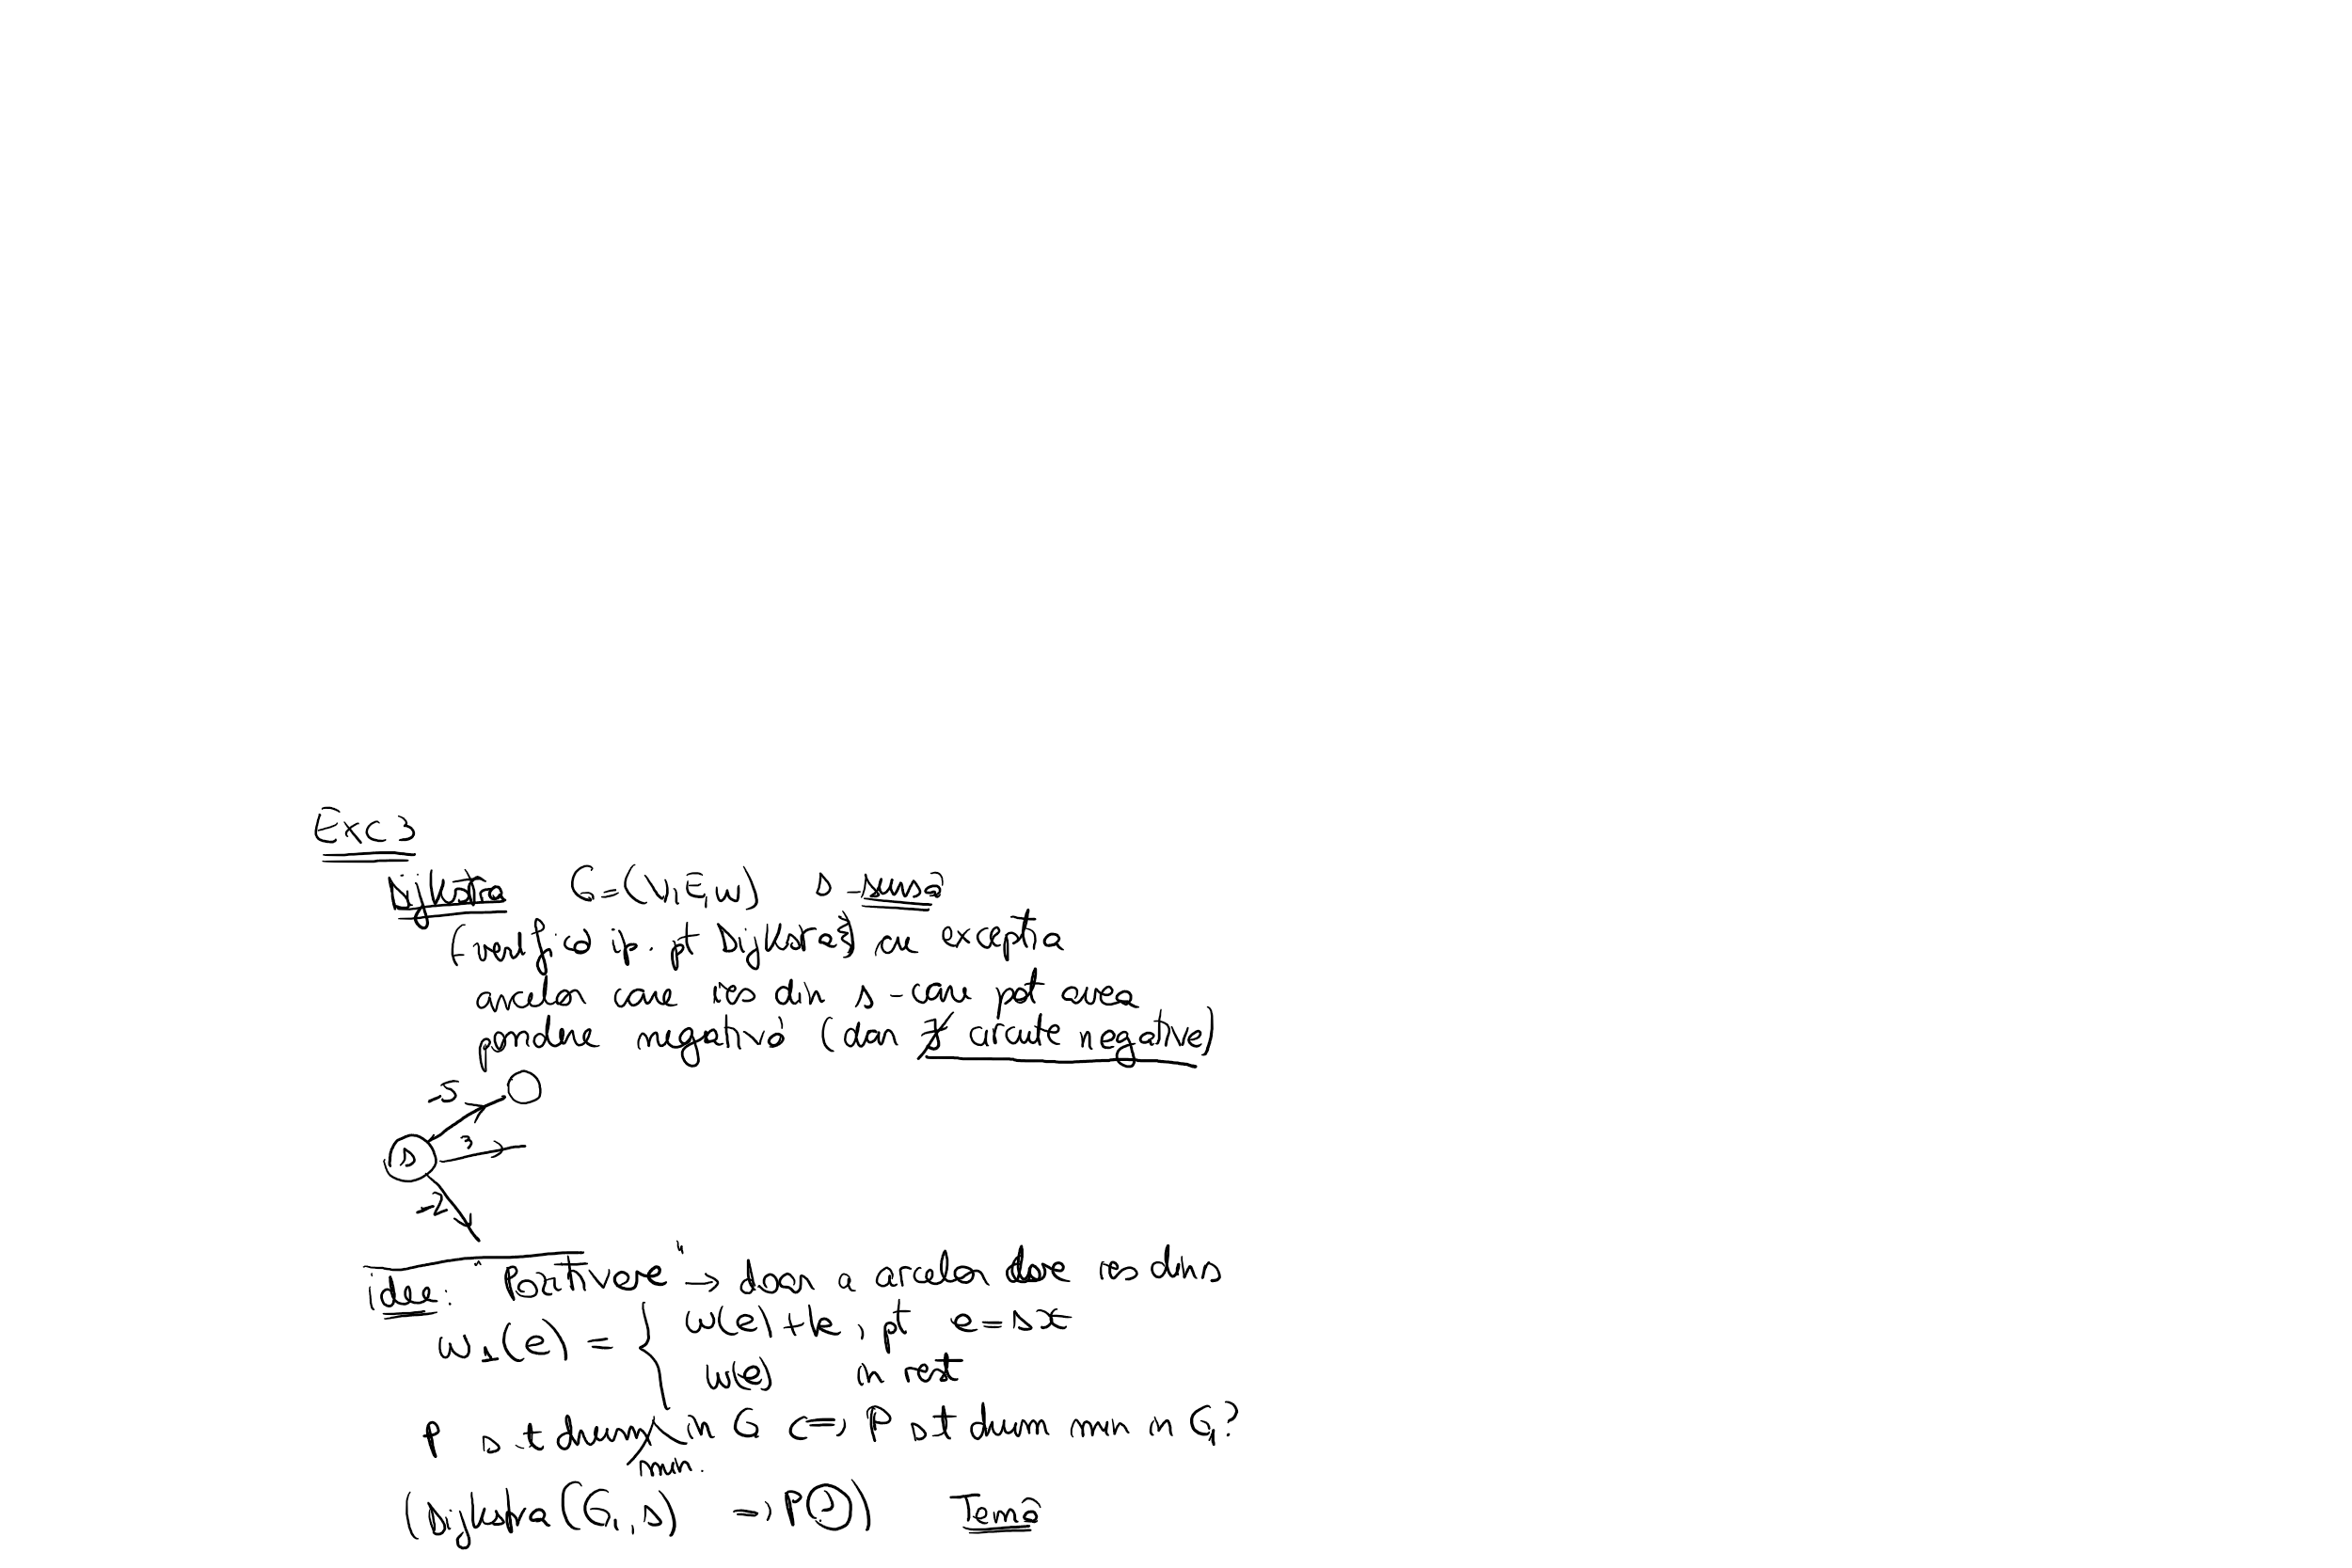 Exc 3
Dijkstra G=(V,E,w) s-sursă
(verifică ip. pt Dijkstra) cu excepția
arcelor care ies din s - care pot avea
pondere negativă (dar ∄ circuite negative)
-5
3
s
-2
idee: "Pozitivare" → doar a arcelor care ies din s
w₁(e) = { w(e)+k, pt e=sx
w(e) în rest
P s-t drum min. în G <=> P st drum min în G₁?
(Dijkstra(G₁,s) => P(?)) Temă